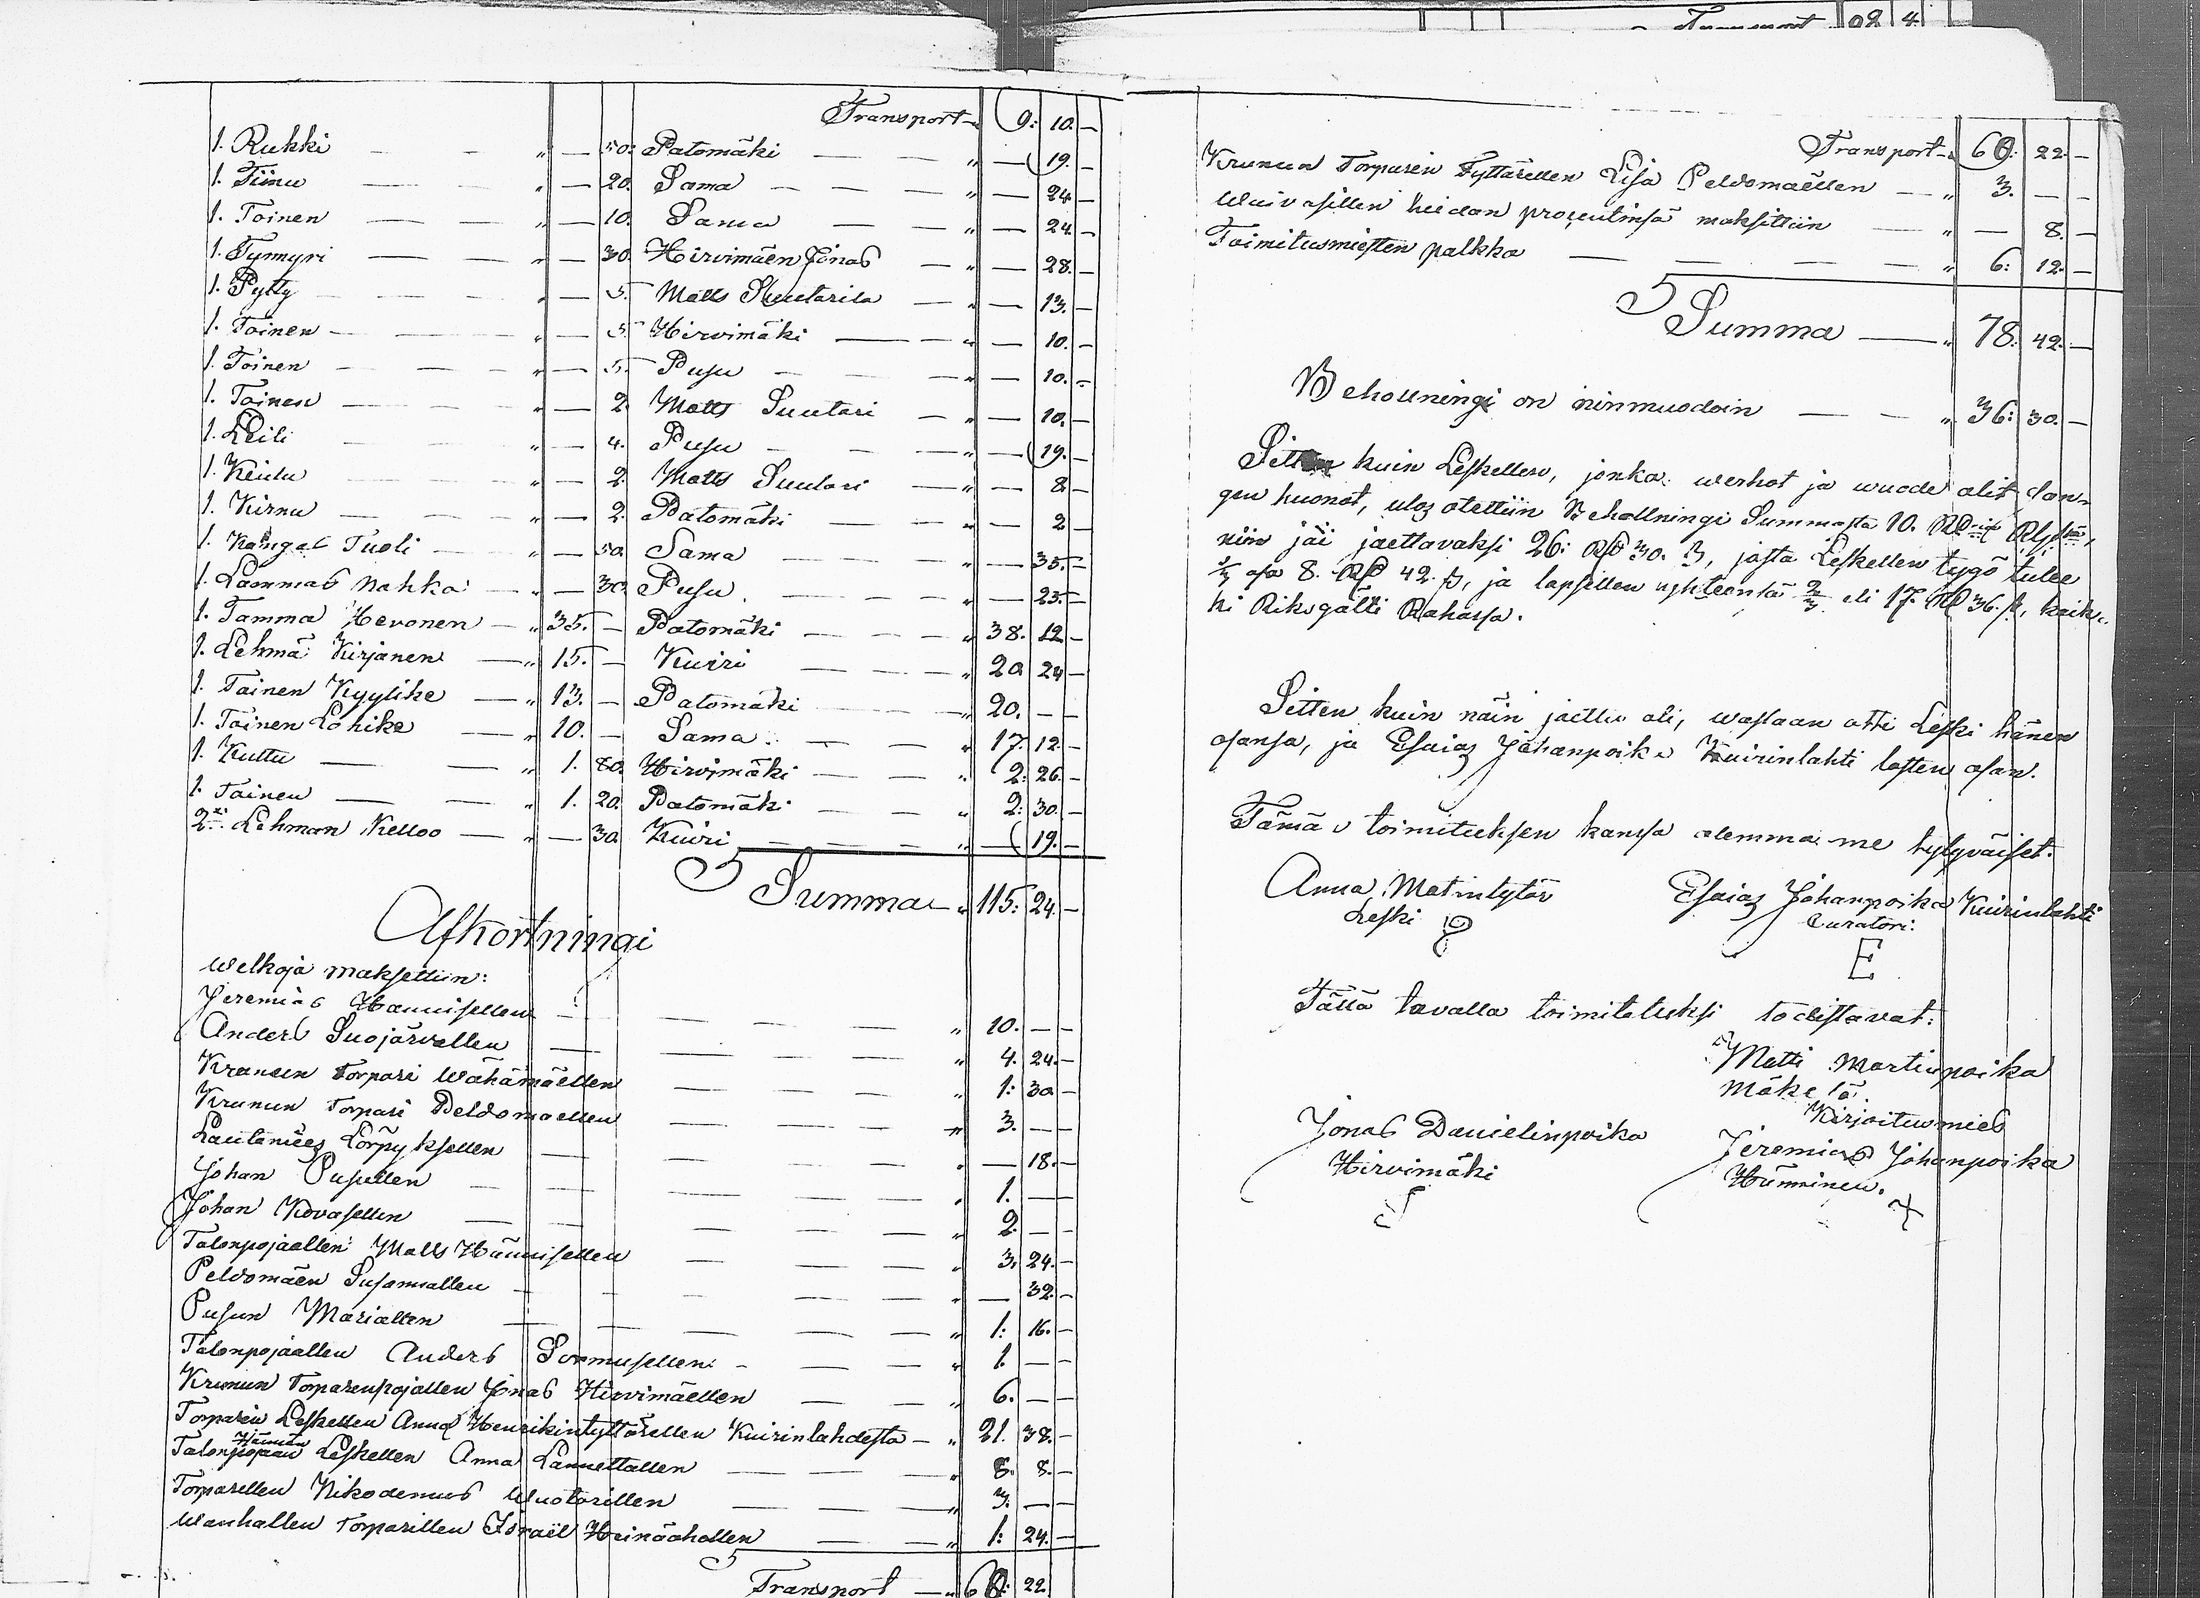 Transport 92 4.
Transport " 9: 10. —
1. Rukki — — " — 50: Patomäki — — " — 19. —
1. Tiinu — — " — 20. Sama — — " — 24 —
1. Toinen — — " — 10. Sama — — " — 24. —
1. Tymyri — — " — 30. Hirvimäen Jonas — " — 28. —
1. Pytty — — " — 5. Matts Suutarila — " — 13. —
1. Toinen — — " — 5. Hirvimäki — — " — 10. —
1. Toinen — — " — 5. Pusu — — " — 10. —
1. Toinen — — " — 2. Matts Suutari — " — 10. —
1. Leili — — " — 4. Pusu — — " — 19. —
1. Kiulu — — " — 2. Matts Suutari — " — 8 —
1. Kirnu — — " — 2. Patomäki — — " — 2 —
1. Kangas Tuoli — " — 50. Sama — — " — 35. —
1. Lammas nahka — " — 30. Pusu — — " — 23. —
1. Tamma Hevonen — " 35. — Patomäki — — " 38. 12 —
1. Lehmä Kirjanen — " 15. — Kuiri — — " 20. 24 —
1. Toinen Kyylike — " 13. — Patomäki — — " 20. — —
1. Toinen Lohike — " 10. — Sama — — " 17. 12. —
1. Kuttu — — " 1. 80. Hirvimäki — — " 2: 26. —
1. Toinen — — " 1. 20. Patomäki — — " 2: 30. —
2xi Lehman Kelloo — " — 30. Kuiri — — " — 19. —
Summa — " 115: 24. —
Afkortningi
Welkoja maksettiin:
Jeremias Hännisellen — — " 10. — —
Anders Suojärvellen — — " 4. 24. —
Kranun Torpari Wähämäellen — — " 1: 30. —
Krunun Torpari Peldomaellen — — " 3. — —
Lautamies Lörpyksellen — — " — 18. —
Johan Pusullen — — " 1. — —
Johan Kovasellen — — " 2. — —
Talonpojaallen Matts Hännisellen — — " 3. 24. —
Peldomäen Susannallen — — " — 32. —
Pusun Mariallen — — " 1: 16. —
Talonpojaallen Anders Sormusellen — — " 1. — —
Krunun Torparenpojallen Jonas Hirvimäellen — — " 6. — —
Torparin Leskellen Anna Henrikintyttärellen Kuirinlahdesta — " 21. 38. —
Talonpojaan Leskellen Anna Lauuettallen — — " 8. 8. —
Torparellen Nikodemus Wuotarillen — — " 3. — —
Wanhallen Torparillen Israël Heinäahollen — — " 1: 24. —
Transport — " 68: 22
Transport " 68: 22. —
Krunun Torparin Tyttärellen Lisa Peldomaëllen — " 3. — —
Waivasillen heidan procentinsä maksittiin — " — 8. —
Toimitusmiesten palkka — — " 6: 12. —
Summa — " 78: 42. —
Behollningi on ninmuodoin — — " 36: 30. —
Sitten kuin Leskellen, jonka werhot ja wuode olit dan-
gen huonot, ulos otettiin Behollningi Summasta 10. Rd
niin jäi jaettavaksi 26: Rd 30. ß, josta Leskellen tygö tulee
⅓ osa 8. Rd 42. ß, ja lapsillen yhteensä ⅔ eli 17. Rd 36. ß, kaik-
ki Riksgälti Rahassa.
Sitten kuin näin jaettu oli, wastaan otti Leski hänen
osansa, ja Esaias Johanpoika Kuirinlahti lasten osan.
Tämän toimituksen kanssa olemma me tytyväiset.
Anna Matintytär Esaias Johanpoika Kuirinlahti
Leski Curatori.
E
Tällä tavalla toimitetuksi todistavat:
Matti Martinpoika
Mäkelä.
Kirjoitusmies
Jonas Danielinpoika Jeremias Johanpoika
Hirvimäki Hänninen.